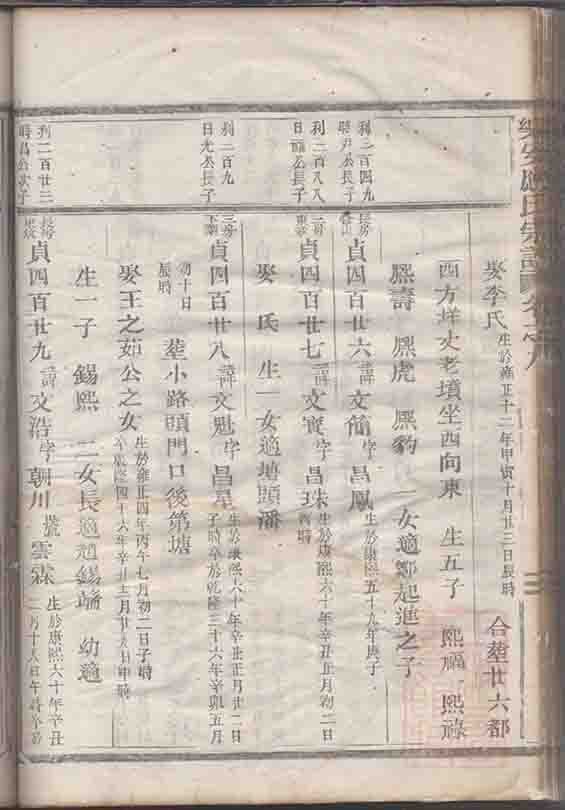 娶李氏 生於雍正十二年甲寅十月廿三日辰時 合塟廿六都
西方垟丈老墳坐西向東 生五子 熙福 熙祿
熙壽 熙虎 熙豹 一女適鄭起進之子
利二百四九
長子
長房
貞四百廿六 諱 文簡 字 昌鳳 生於康熙五十九年庚子
利二百八八
日 公長子
二房
貞四百廿七 諱 文寶 字 昌珠 生於康熙六十年辛丑正月初二日
酉時
娶 氏 生一女適塘頭潘
利二百九
日 公長子
三房
貞四百廿八 諱 文魁 字 昌星 生於康熙六十年辛丑正月廿二日
子時卒於乾隆三十六年辛卯五月
初十日
辰時 塟小路頭門口後第塘
娶王之茹公之女 生於雍正四年丙午七月初二日子時
卒 隆四十六年辛丑 月廿 日申時
生一子 錫熙 二女長適趙錫端 幼適
利二百廿二
昌公次子
長房
貞四百廿九 諱 文浩 字 朝川 號 雲霖 生於康熙六十年辛丑
二月十八日午時